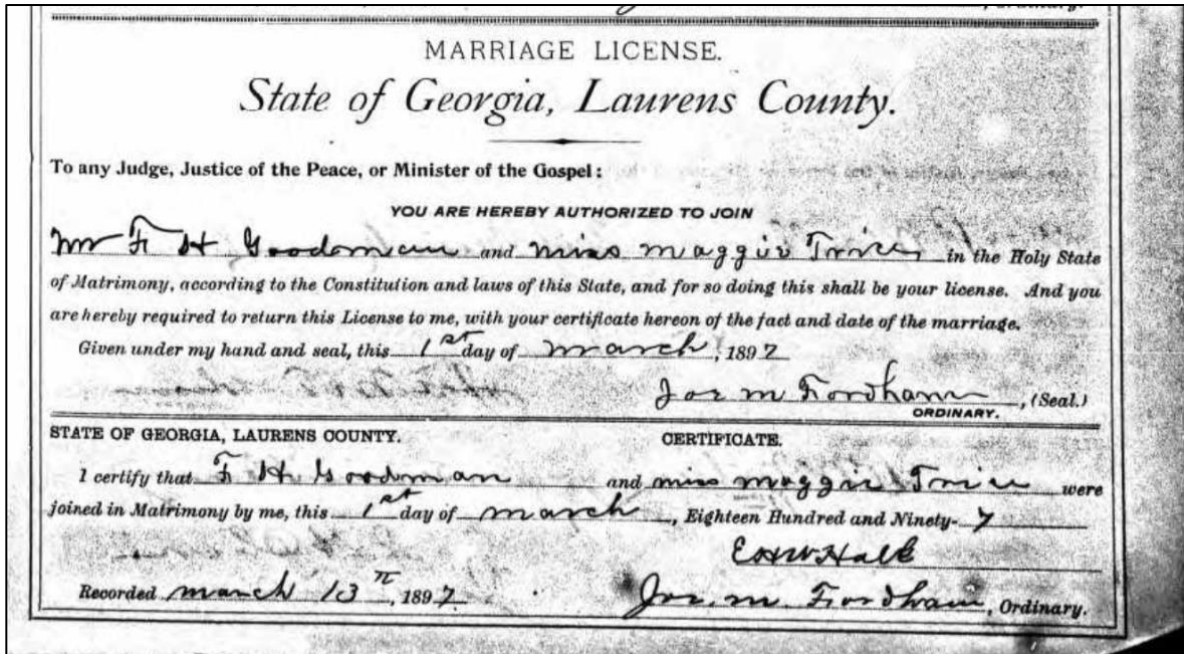 , Ordinary.
MARRIAGE LICENSE.
State of Georgia, Laurens County.
To any Judge, Justice of the Peace, or Minister of the Gospel:
YOU ARE HEREBY AUTHORIZED TO JOIN
Mr F H Goodman and Miss Maggie Trice in the Holy State
of Matrimony, according to the Constitution and laws of this State, and for so doing this shall be your license. And you
are hereby required to return this License to me, with your certificate hereon of the fact and date of the marriage.
Given under my hand and seal, this 1st day of March, 1897
Jos M Fordham, (Seal.)
ORDINARY.
STATE OF GEORGIA, LAURENS COUNTY. CERTIFICATE.
I certify that F H Goodman and Miss Maggie Trice were
joined in Matrimony by me, this 1st day of March, Eighteen Hundred and Ninety-7
Recorded March 13th, 1897 Jos. M. Fordham, Ordinary.